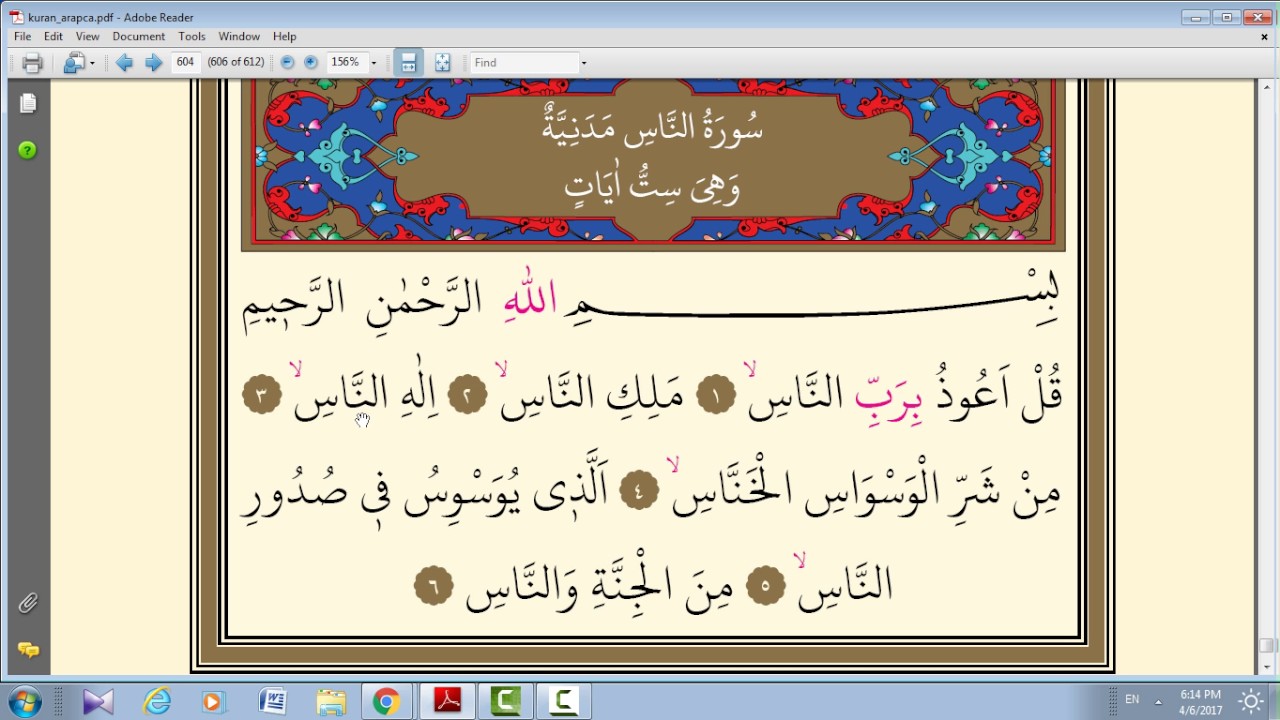 kuran_arapca.pdf - Adobe Reader
File Edit View Document Tools Window Help
604 (606 of 612) 156% Find
سُورَةُ النَّاسِ مَدَنِيَّةٌ
وَهِيَ سِتُّ اٰيَاتٍ
بِسْمِ اللّٰهِ الرَّحْمٰنِ الرَّح۪يمِ
قُلْ اَعُوذُ بِرَبِّ النَّاسِۙ ١ مَلِكِ النَّاسِۙ ٢ اِلٰهِ النَّاسِۙ ٣
مِنْ شَرِّ الْوَسْوَاسِ الْخَنَّاسِۙ ٤ اَلَّذ۪ى يُوَسْوِسُ ف۪ى صُدُورِ
النَّاسِۙ ٥ مِنَ الْجِنَّةِ وَالنَّاسِ ٦
EN 6:14 PM
4/6/2017